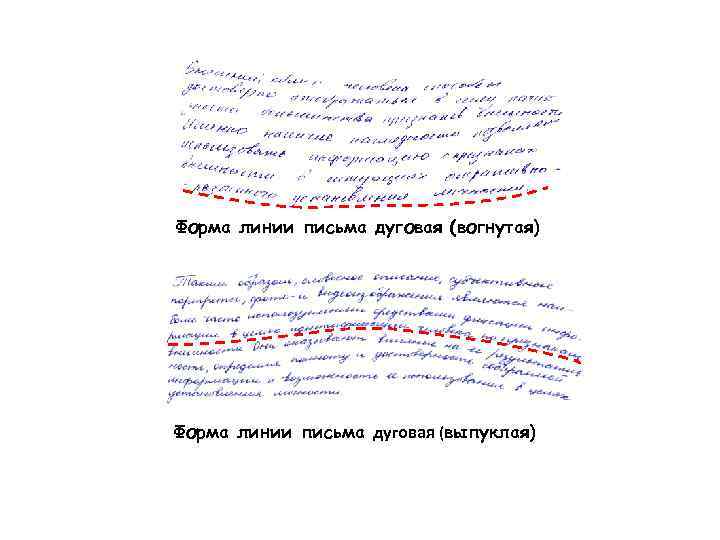 Внешний облик человека способен
достоверно отображаться в силу налич
большинства признаков внешности
Именно наглядность позволяет
использовать информацию о признаках
внешности в ситуациях оперативно-
розыскного установления личности.
Форма линии письма дуговая (вогнутая)
Таким образом, словесное описание, субъективные
портреты, фото- и видеоизображения являются наи-
более часто используемыми средствами фиксации инфор-
мации в целью идентификации человека по признакам
внешности. Они оказывают влияние на ее результатив-
ность, определяя полноту и достоверность собираемой
информации и возможности ее использования в целях
установления личности.
Форма линии письма дуговая (выпуклая)